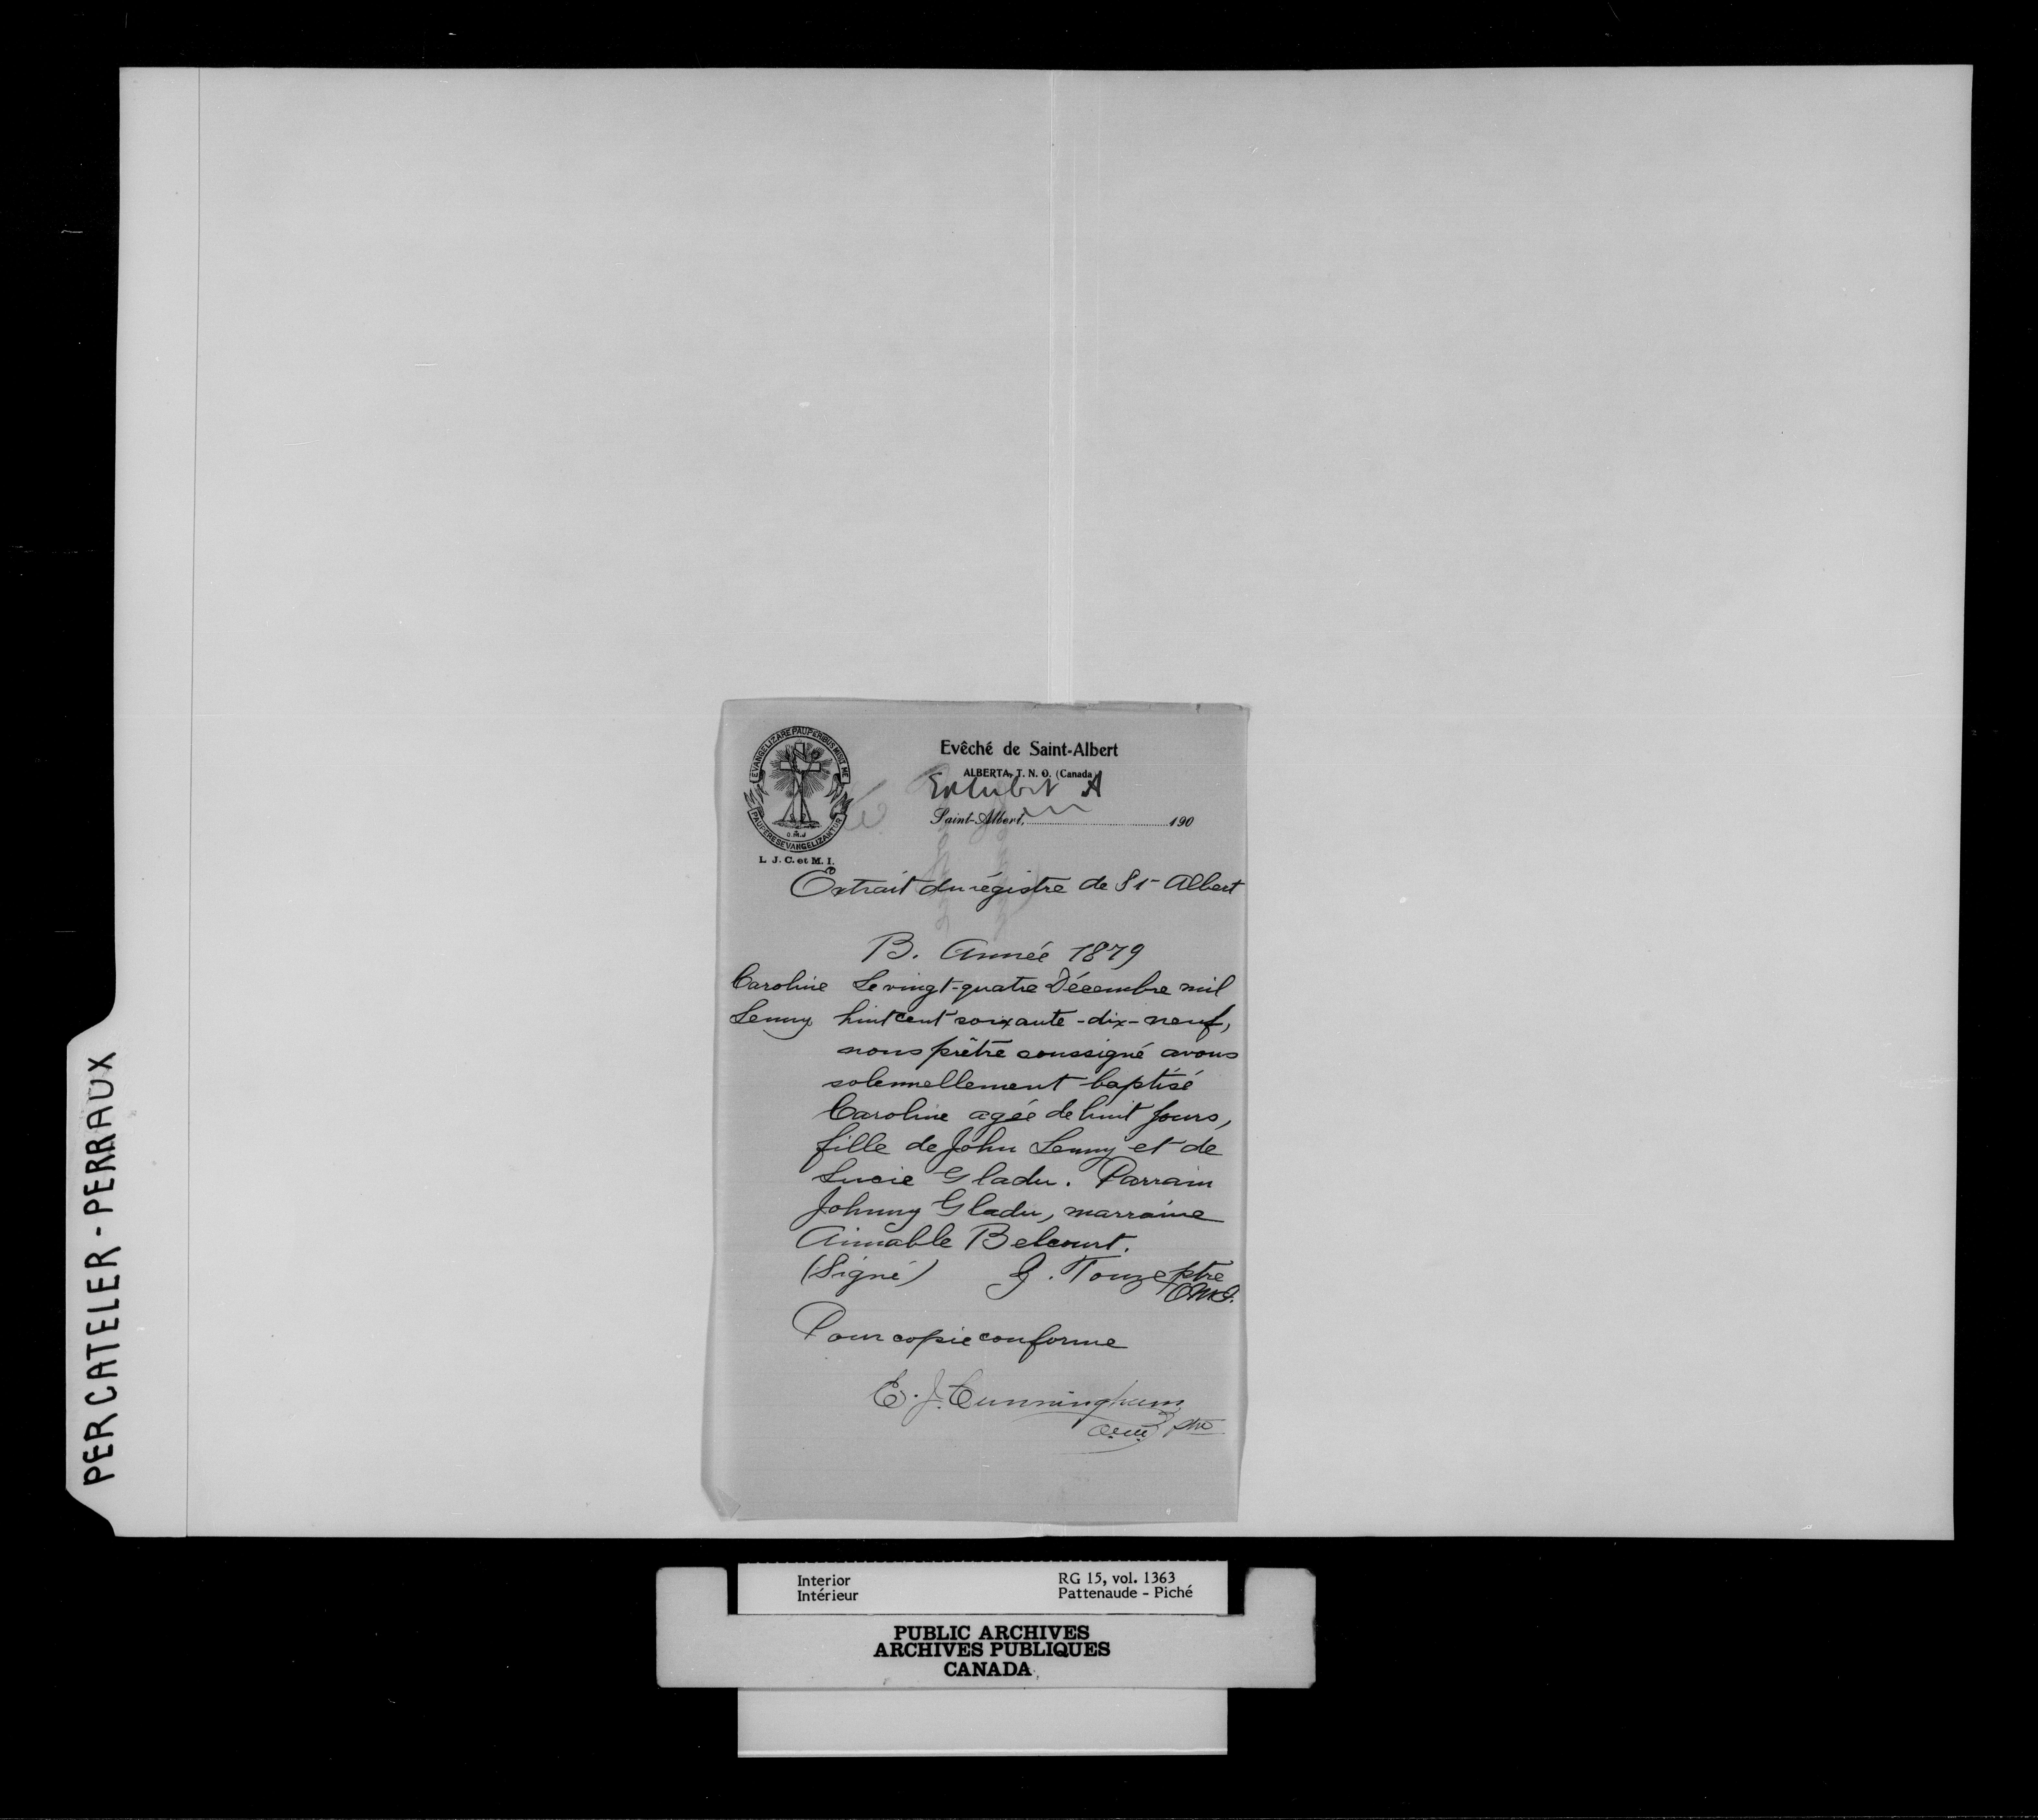 PERCATELER - PERRAUX
EVANGELIZARE PAUPERIBUS MISIT ME
PAUPERES EVANGELIZANTUR
O.M.I
L. J. C. et M. I.
Evêché de Saint-Albert
ALBERTA, T. N. O. (Canada)
Exhibit A
Saint-Albert, 190
Extrait du régistre de St Albert
B. Année 1879
Caroline Le vingt-quatre Décembre mil
Lenny huit cent soixante-dix-neuf,
nous prêtre soussigné avons
solennellement baptisé
Caroline agée de huit jours,
fille de John Lenny et de
Lucie Gladu. Parrain
Johnny Gladu, marraine
Aimable Belcourt.
(Signé) J. Touze ptre
OMI.
Pour copie conforme
E. J. Cunningham
o.m.i. ptre
Interior
Intérieur
RG 15, vol. 1363
Pattenaude - Piché
PUBLIC ARCHIVES
ARCHIVES PUBLIQUES
CANADA